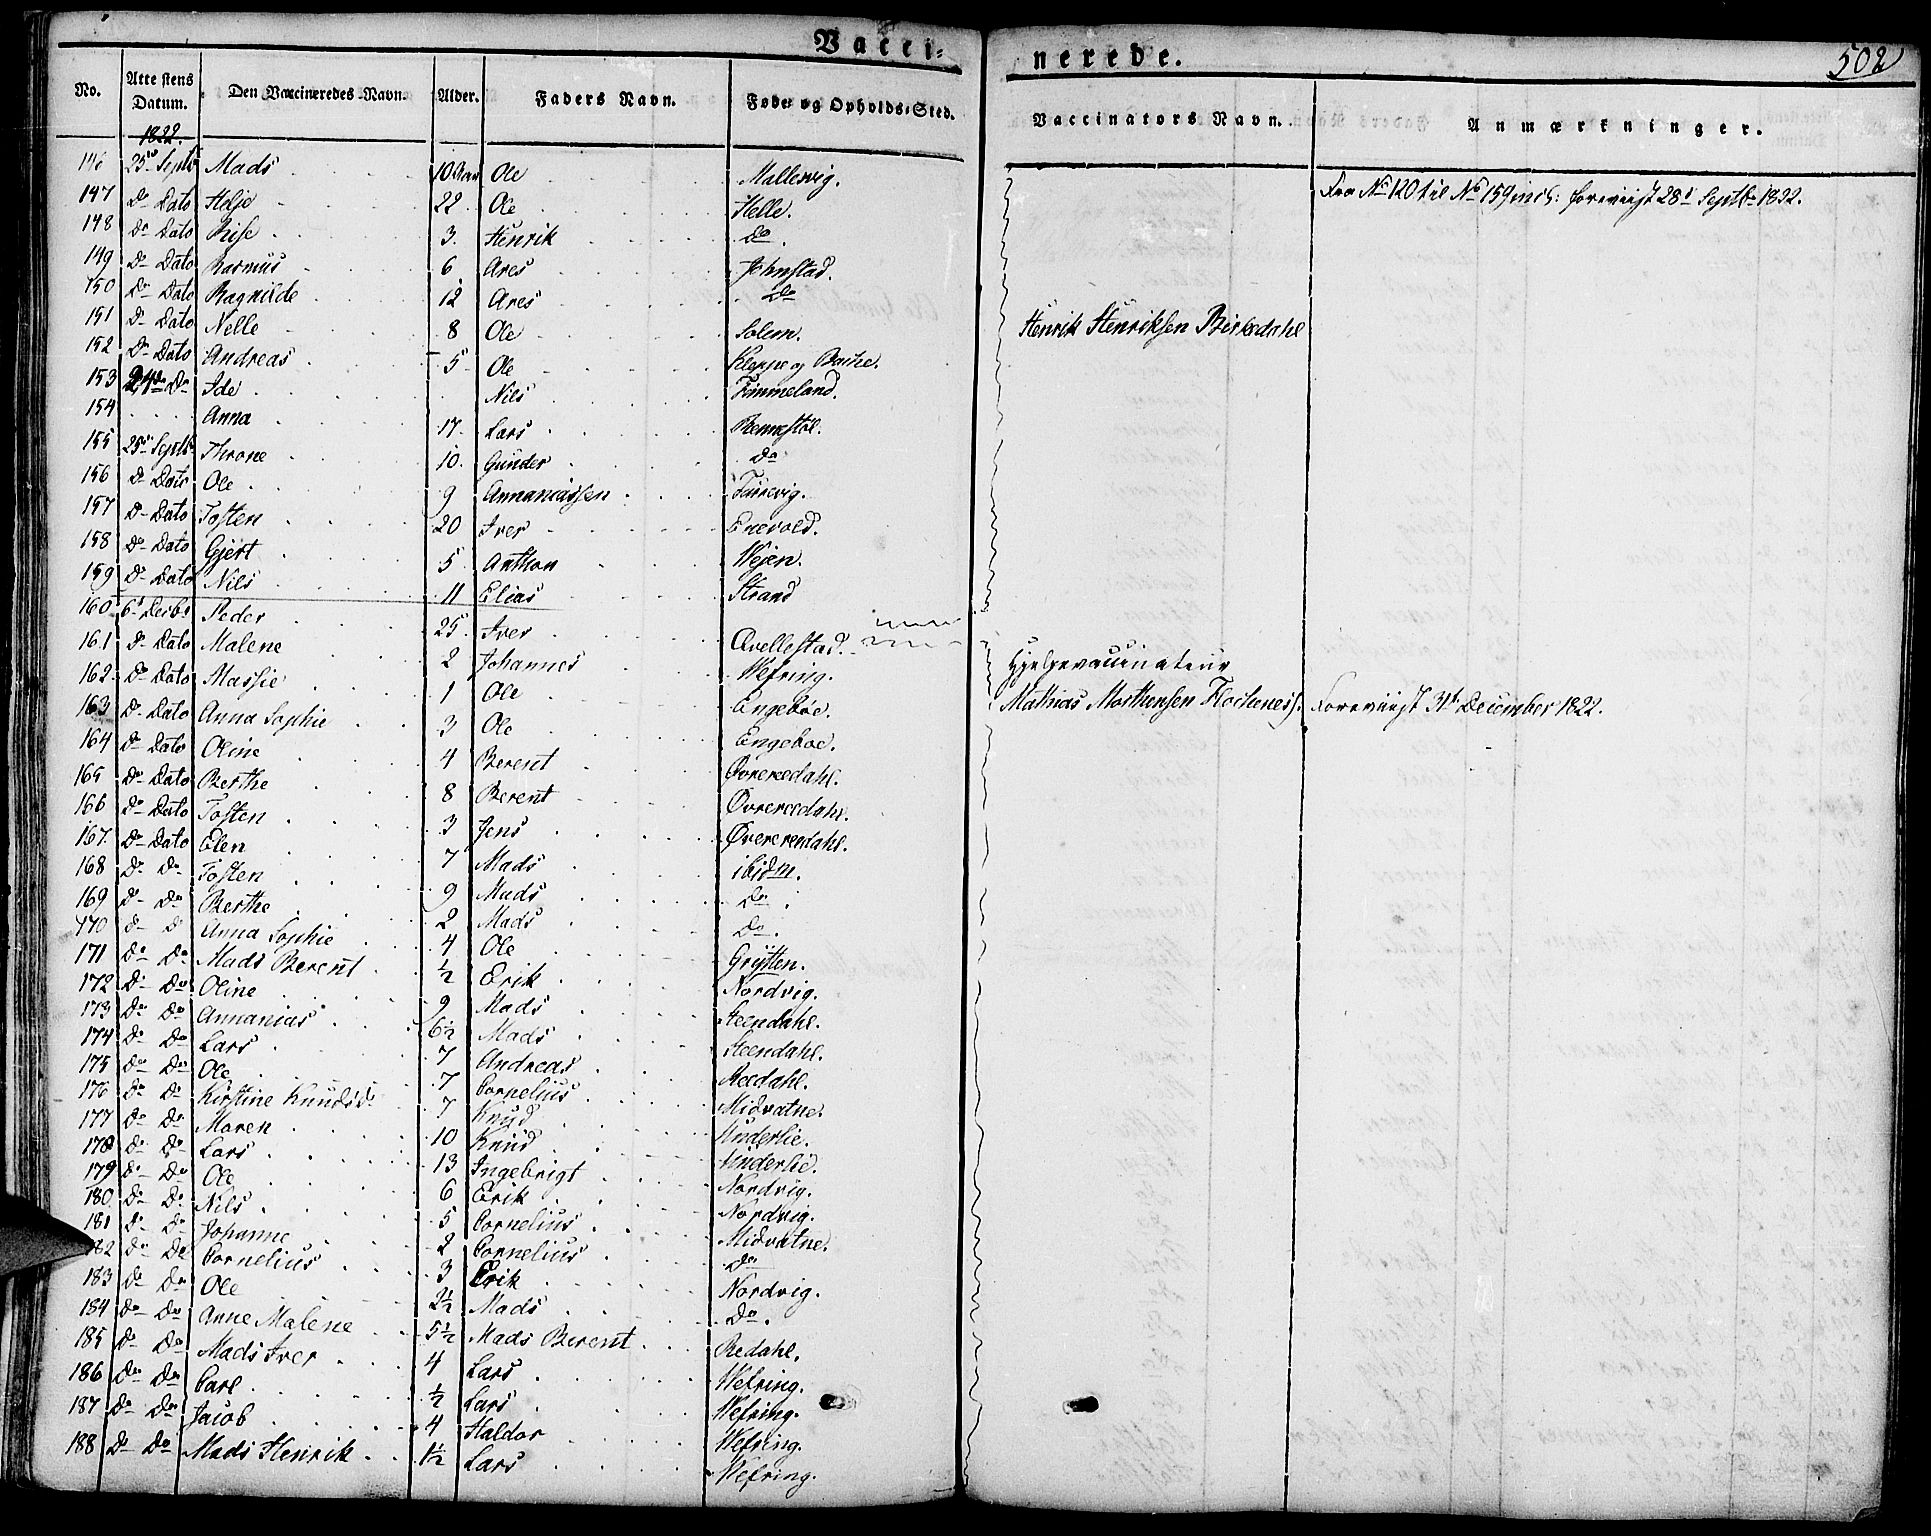 Vacci- nerede. 502
No. Attestens Datum. Den Vaccineredes Navn. Alder. Faders Navn. Føde og Opholds-Sted. Vaccinators Navn. Anmærkninger.
1822.
146 25de Septb Mads 10 Aar Ole Mallevig. Fra No 120 til No 159 incl: foreviist 28d Septbr 1822.
147 Do Dato Helje 22 Ole Helle.
148 Do Dato Rise 3. Henrik Do.
149 Do Dato Rasmus 6 Ares Johnstad.
150 Do Dato Ragnilde 12 Ares Do
151 Do Dato Nelle 8 Ole Solem. Henrik Henriksen Birkedahl
152 Do Dato Andreas 5 Ole Kleppe og Bache.
153 24de Do Ide Nils Fimmeland.
154 Anna 17. Lars Rennestøl.
155 25de Septbr Throne 10. Gunder Do
156 Do Dato Ole 9 Annaniassen
157 Do Dato Tosten 20 Iver Enevold.
158 Do Dato Gjert 5 Anthon Wejen.
159 Do Dato Nils 11 Elias Strand
160 6d Decbr Peder 25. Iver Qvellestad.
161 Do Dato Malene 2 Johannes Wefring. Hjelpevaccinateur
162 Do Dato Massie 1 Ole Engebøe. Mathias Morthensen Flochenes. Foreviist 31te December 1822.
163 Do Dato Anna Sophie 3 Ole Engeboe.
164 Do Dato Oline 4 Berent Øvreredahl.
165 Do Dato Berthe 8 Berent Øvrereedahl.
166 Do Dato Tosten 3 Jens Øvereredahl.
167. Do Dato Elen 7 Mads ibidm.
168 Do Do Tosten 9 Mads Do.
169 Do Do Berthe 2 Mads Do.
170 Do Do Anna Sophie 4 Ole Grytten.
171 Do Do Mads Berent ½ Erik Nordvig.
172 Do Do Oline 9 Mads Steendahl.
173 Do Do Annanias 6½ Mads Steendahl.
174 Do Do Lars 7 Andreas Reedahl.
175 Do Do Ole 7 Cornelius Midvatne.
176 Do Do Kirstine Knudsd. 7 Knud Underlie.
177 Do Do Maren 10 Knud Underlie.
178 Do Do Lars 13 Ingebrigt Nordvig.
179 Do Do Ole 6 Erik Nordvig.
180 Do Do Nils 5 Cornelius Midvatne.
181 Do Do Johanne 2 Cornelius Do
182 Do Do Cornelius 3 Erik Nordvig.
183 Do Do Ole 2½ Mads Do.
184 Do Do Anne Malene 5½ Mads Berent Redahl.
185 Do Do Mads Iver 4 Lars Wefring.
186 Do Do Carl ½ Lars Wefring.
187 Do Do Jacob 4 Haldor Wefring.
188 Do Do Mads Henrik 1½ Lars Wefring.